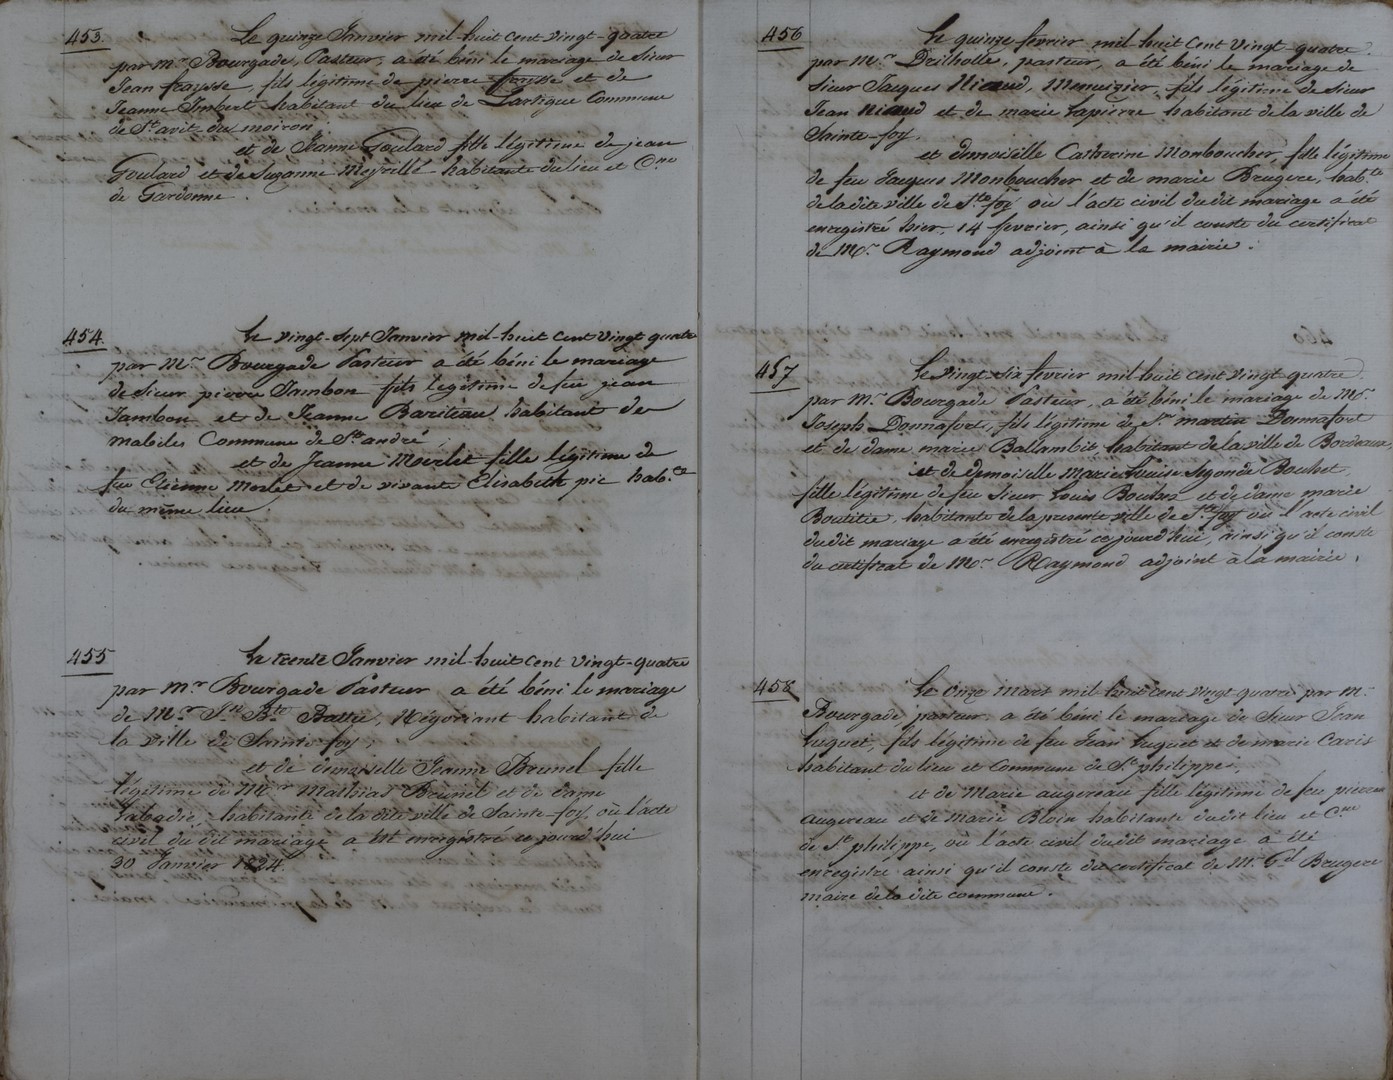 453
Le quinze Janvier mil-huit cent vingt-quatre
par mr. Bourgade, Pasteur, a été béni le mariage de Sieur
Jean fraysse, fils légitime de pierre fraysse et de
Jeanne Imbert habitant du lieu de Lartigue Commune
de St. avit du moiron;
et de Jeanne Goulard fille légitime de jean
Goulard et de Suzanne Meyrille habitante du lieu et Cne
de Gardonne.
454
Le vingt-sept Janvier mil-huit cent vingt quatre
par Mr. Bourgade Pasteur a été béni le mariage
de Sieur pierre Jambon fils legitime de feu jean
Jambon et de Jeanne Bariteau habitant de
mabiles Commune de St. andré;
et de Jeanne Morlet fille légitime de
feu Etienne Morlet et de vivante Elisabeth pic hab.te
du même lieu.
455
Le trente Janvier mil-huit cent vingt-quatre
par Mr Bourgade Pasteur a été béni le mariage
de Mr Jn. Bte. Battre, Négociant habitant de
la ville de Sainte-foy;
et de demoiselle Jeanne Brunel fille
légitime de Mr. Mathias Brunel et de dame
Labadie, habitante de la dite ville de Sainte-foy, où l'acte
civil du dit mariage a été enregistré ce jourd'hui
30 Janvier 1824.
456
Le quinze fevrier mil huit cent vingt-quatre
par Mr. Drilholle, pasteur, a été béni le mariage de
Sieur Jaques Nicaud, Menuizier, fils légitime de Sieur
Jean Nicaud et de marie Lapierre habitant de la ville de
Sainte-foy.
et demoiselle Catherine Monboucher, fille légitime
de feu Jaques Monboucher et de marie Brugere, hab.te
de la dite ville de Ste. foy où l'acte civil du dit mariage a été
enregistré hier, 14 fevrier, ainsi qu'il conste du certificat
de Mr. Raymond adjoint à la mairie.
457
Le vingt-six fevrier mil huit cent vingt quatre
par Mr. Bourgade Pasteur, a été béni le mariage de Mr.
Joseph Donnafort, fils légitime de Sr. martin Donnafort
et de dame marie Ballambit, habitant de la ville de Bordeaux,
et de demoiselle Marie Louise Bouhet
fille légitime de feu Sieur Louis et de dame marie
habitante de la presente ville de Ste. foy où l'acte civil
du dit mariage a été enregistré ce jourd'hui, ainsi qu'il conste
du certificat de Mr. Raymond adjoint à la mairie.
458
Le onze Mars mil huit cent vingt quatre par Mr.
Bourgade pasteur, a été béni le mariage de Sieur Jean
Luguet, fils légitime de feu Jean Luguet et de marie Caris
habitant du lieu et Commune de St. philippe;
et de Marie augereau fille légitime de feu pierre
augereau et de Marie Bloin habitante du dit lieu et Cne
de St. philippe, où l'acte civil du dit mariage a été
enregistré ainsi qu'il conste du certificat de Mr. Gd. Brugere
maire de la dite commune.